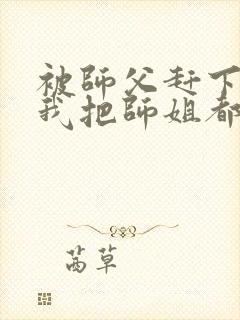 被師父赶下
我把師姐都
茜草